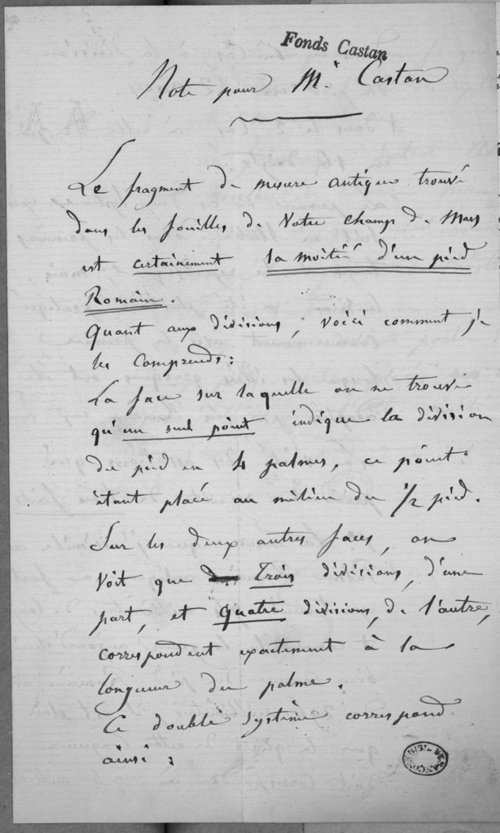 Fonds Castan
Note pour Mr Castan
Le fragment de mesure antique trouvé
dans les fouilles de Votre champ de Mars
est certainement la moitié d'un pied
Romain.
Quant aux divisions, voici comment je
les comprends:
La face sur laquelle on ne trouve
qu'un seul point indique la division
du pied en 4 palmes, ce point
étant placé au milieu du 1/2 pied.
Sur les deux autres faces, on
voit que Trois divisions, d'une
part, et quatre divisions, de l'autre,
correspondent exactement à la
longueur du palme.
Ce double système correspond
ainsi: